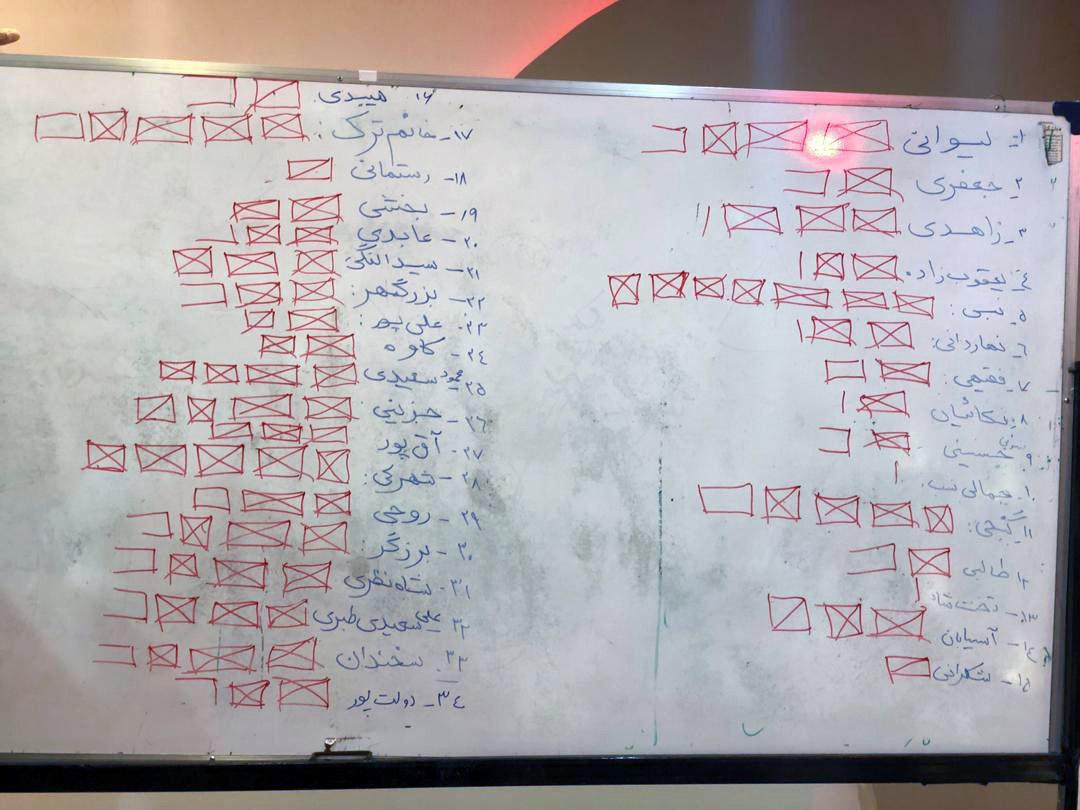 ۱ـ لیوانی
۲. جعفری
۳ـ زاهدی
٤ـ یعقوب زاده
۵ـ نبی:
٦ـ نهاردانی:
۷ـ فقیهی:
۸. یکائیان
۹. حسینی
۱۰. جمالی نسب.
۱۱ـ گنجی:
۱۲ـ طالبی
۱۳ـ تخت
۱٤ـ آسیابان
۱۵ـ شکرانی
۱۶. میبدی.
۱۷ـ خانم ترک:
۱۸ـ رستمانی
۱۹ـ بخشی
۲۰ـ عابدی
۲۱ـ سیدالنگی
۲۲ـ بزرگمهر:
۲۳. علی پور:
۲٤ـ کاوه
۲۵ـ محمود سعیدی
۲۶ـ حزینی:
۲۷. آق پور
۲۸ـ تهرکی:
۲۹ـ روحی
۳۰ـ برزگر
۳۱ـ شاه نظری
۳۲ـ علی سعیدی طبری
۳۳. سخندان
۳٤ـ دولت پور